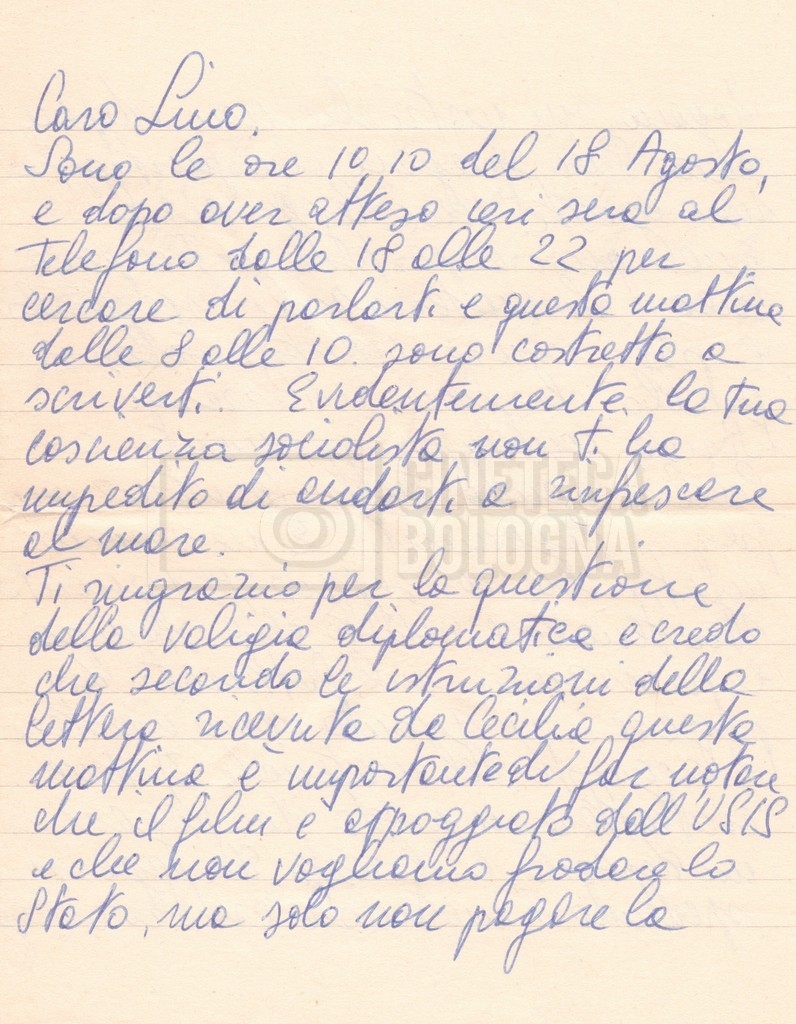 Caro Lino.
Sono le ore 10,10 del 18 Agosto,
e dopo aver atteso ieri sera al
Telefono dalle 18 alle 22 per
cercare di parlarti e questa mattina
dalle 8 alle 10. sono costretto a
scriverti. Evidentemente la tua
coscienza socialista non ti ha
impedito di andarti a rinfrescare
al mare.
CINETECA
BOLOGNA
Ti ringrazio per la questione
della valigia diplomatica e credo
che secondo le istruzioni della
lettera ricevuta da Cecilia questa
mattina è importante di far notare
che il film è appoggiato dall'USIS
e che non vogliamo frodare lo
Stato, ma solo non pagare la